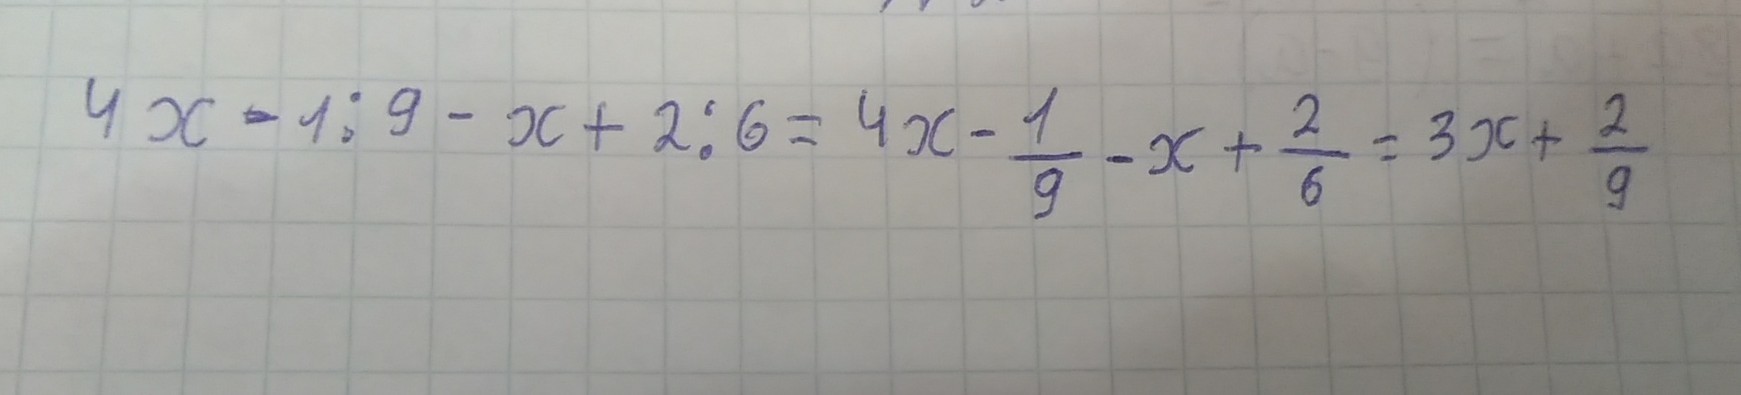 4x - 1 : 9 - x + 2 : 6 = 4x - 1/9 - x + 2/6 = 3x + 2/9